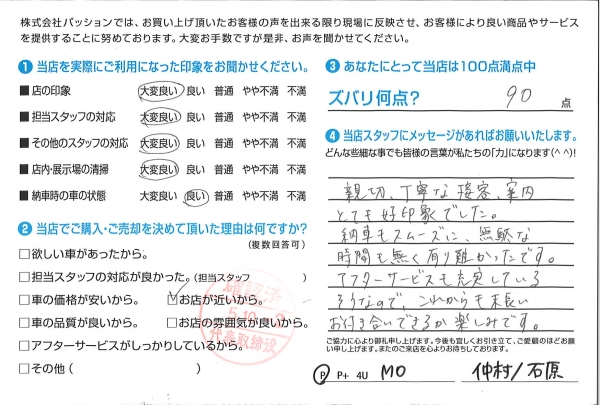 株式会社パッションでは、お買い上げ頂いたお客様の声を出来る限り現場に反映させ、お客様により良い商品やサービス
を提供することに努めております。大変お手数ですが是非、お声を聞かせてください。
① 当店を実際にご利用になった印象をお聞かせください。
■ 店の印象 大変良い 良い 普通 やや不満 不満
■ 担当スタッフの対応 大変良い 良い 普通 やや不満 不満
■ その他のスタッフの対応 大変良い 良い 普通 やや不満 不満
■ 店内・展示場の清掃 大変良い 良い 普通 やや不満 不満
■ 納車時の車の状態 大変良い 良い 普通 やや不満 不満
② 当店でご購入・ご売却を決めて頂いた理由は何ですか?
(複数回答可)
□欲しい車があったから。
□担当スタッフの対応が良かった。(担当スタッフ )
□車の価格が安いから。 ☑お店が近いから。
□車の品質が良いから。 □お店の雰囲気が良いから。
□アフターサービスがしっかりしているから。
□その他( )
確認済
代表取締役
③ あなたにとって当店は100点満点中
ズバリ何点? 90 点
④ 当店スタッフにメッセージがあればお願いいたします。
どんな些細な事でも皆様の言葉が私たちの「力」になります(^ ^)!
親切、丁寧な接客、案内
とても好印象でした。
納車もスムーズに、無駄な
時間も無く有り難かったです。
アフターサービスも充実している
そうなので、これからも末長い
お付き合いできるか楽しみです。
ご協力に心より御礼申し上げます。今後も宜しくお引き立て、ご愛顧のほどお願
い申し上げます。またのご来店を心よりお待ちしております。
P P+ 4U MO 仲村/石原